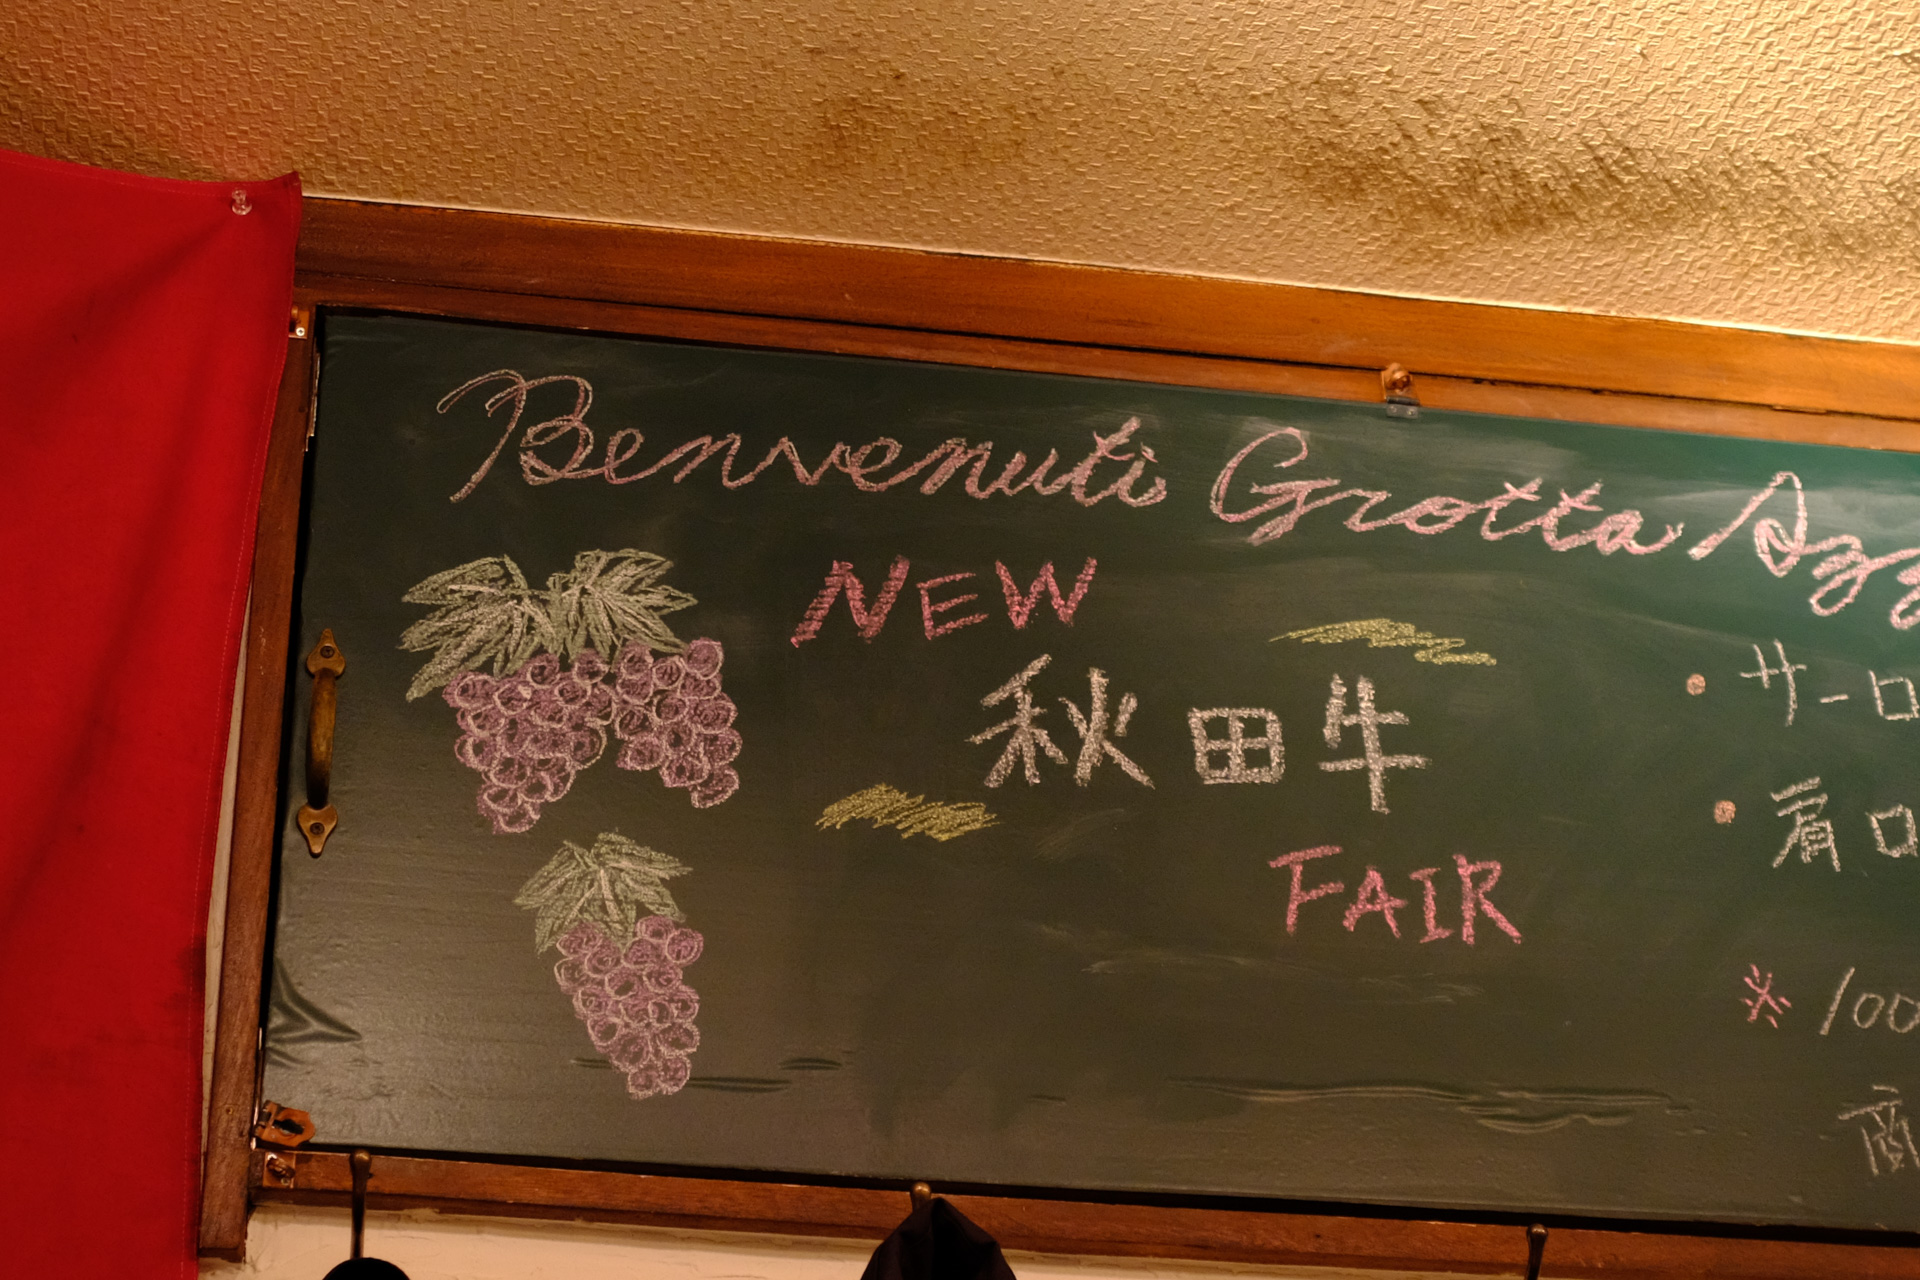 Benvenuti Grotta Azz
NEW
秋田牛
FAIR
・サーロ
・肩ロ
※100
商